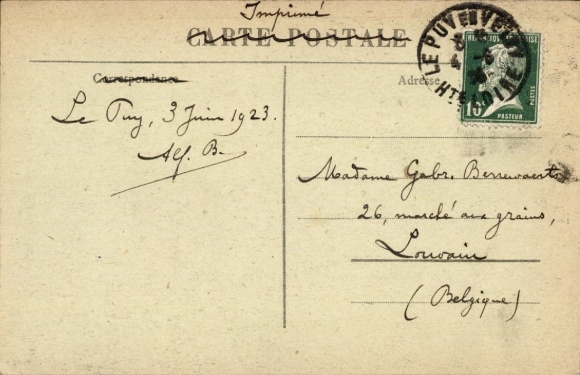 Imprimé
CARTE POSTALE
Correspondance
Adresse
LE PUY EN VELAY
Hte LOIRE
10
PASTEUR
POSTES
Le Puy, 3 Juin 1923.
Alf. B.
Madame Gabr.
26, marché aux grains,
Louvain
(Belgique)